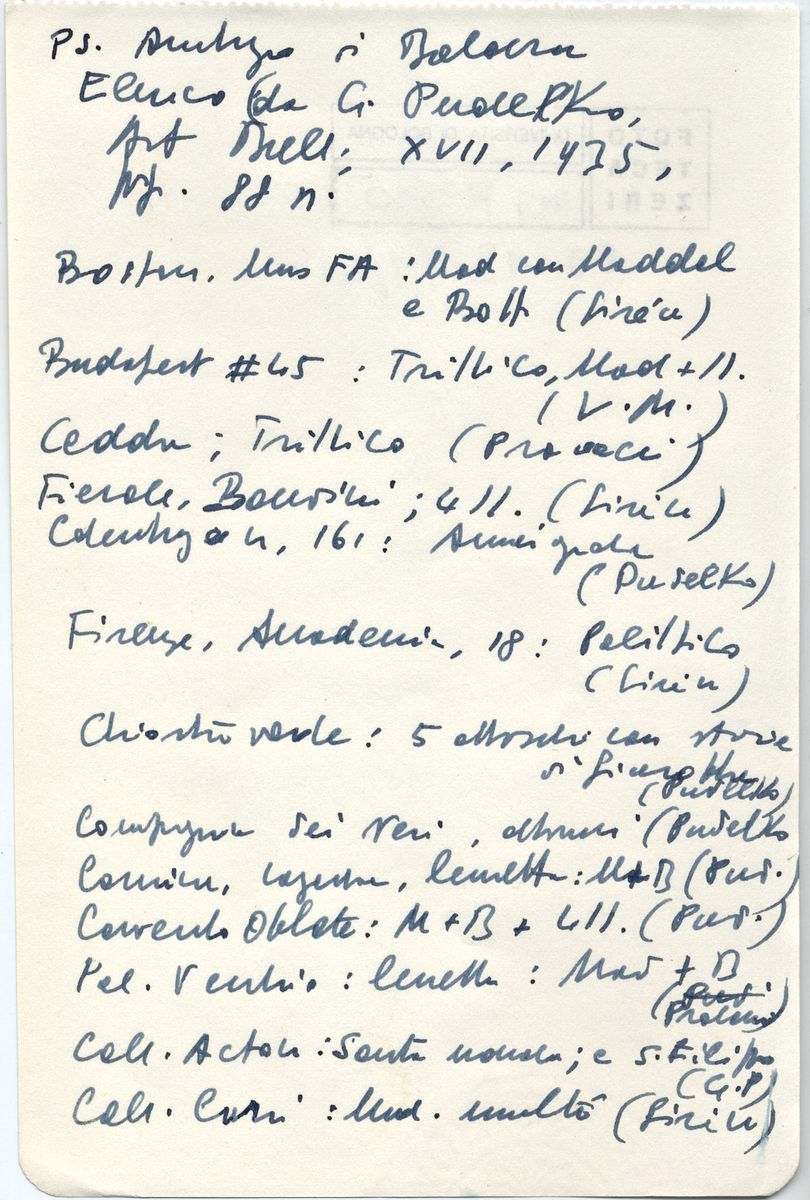 Ps. Ambrogio di Baldese
Elenco (da G. Pudelko,
Art Bull., XVII, 1935,
pg. 88 n.
Boston. Mus FA : Mad con Maddal
e Batt (Sirén)
Budapest #45 : Trittico, Mad + SS.
(V. M.)
Cedda ; Trittico (Procacci)
Fiesole, Bandini ; 4 SS. (Sirén)
Copenhagen, 161 :
(Pudelko)
Firenze, Accademia, 18 : Polittico
(Sirén)
Chiostro verde : 5 affreschi con storie
di
(Pudelko)
Compagnia dei Neri, affreschi (Pudelko
lunetta : M+B (Pud.)
Convento Oblate : M + B + 4 SS. (Pud.)
Pal. Vecchio : lunetta : Mad + B
(Pud.
Procacci)
Coll. Acton : Santa monaca ; e S. Filippo
(G.P)
Coll. Corsi : Mad. umiltà (Sirén)
FOTO
TECA
ZERI
UNIVERSITÀ DI BOLOGNA